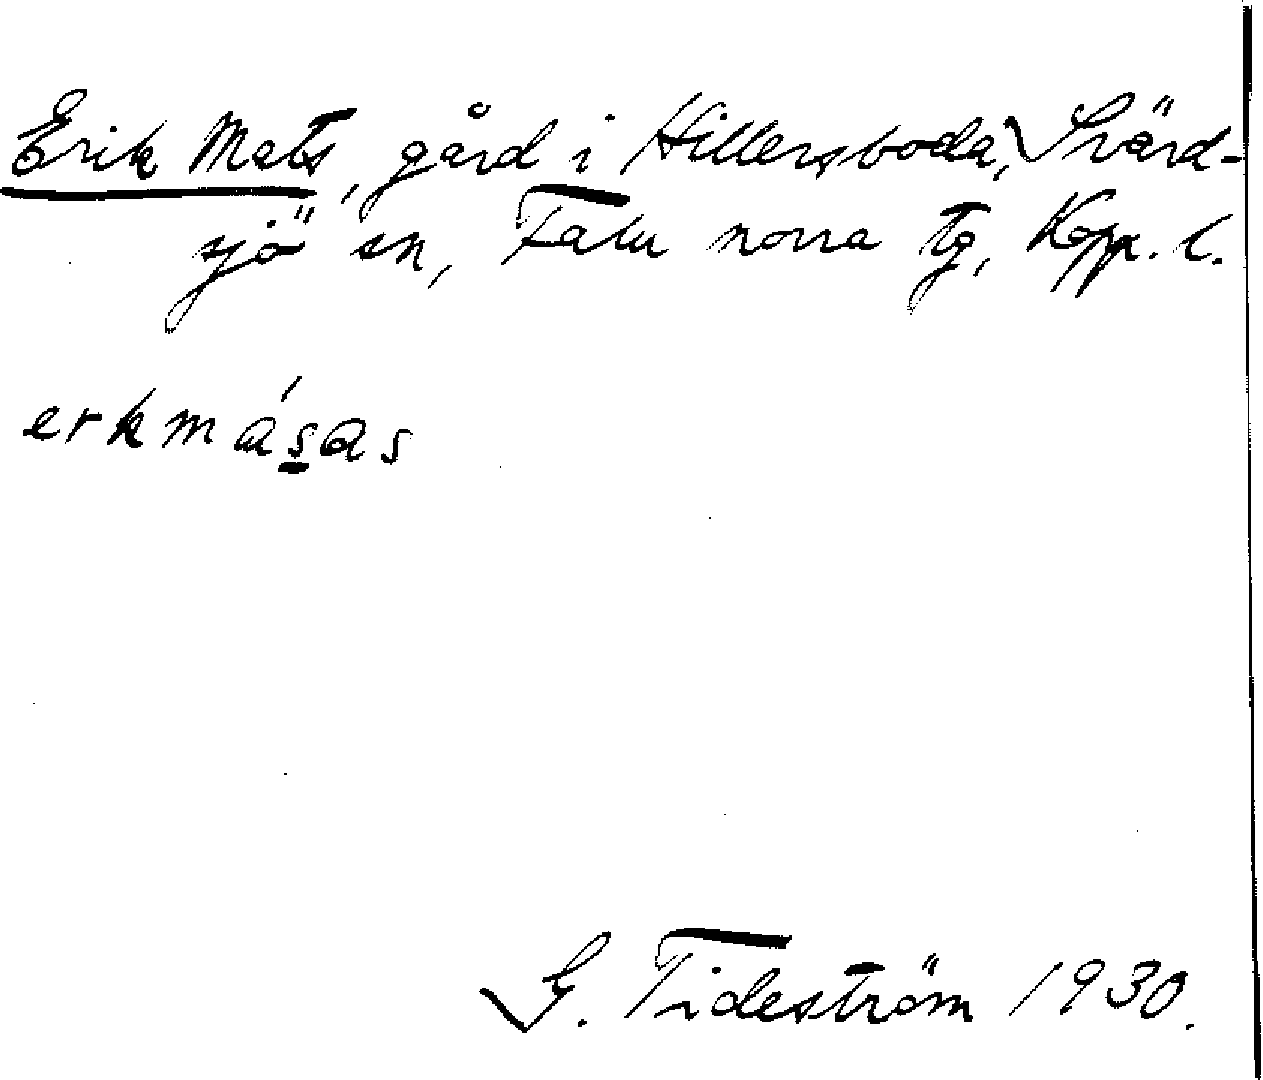 Erik Mats, gård i Hillersboda, Svärd-
sjö sn, Falu norra tg, Kopp. l.
erkmásas
G. Tideström 1930.